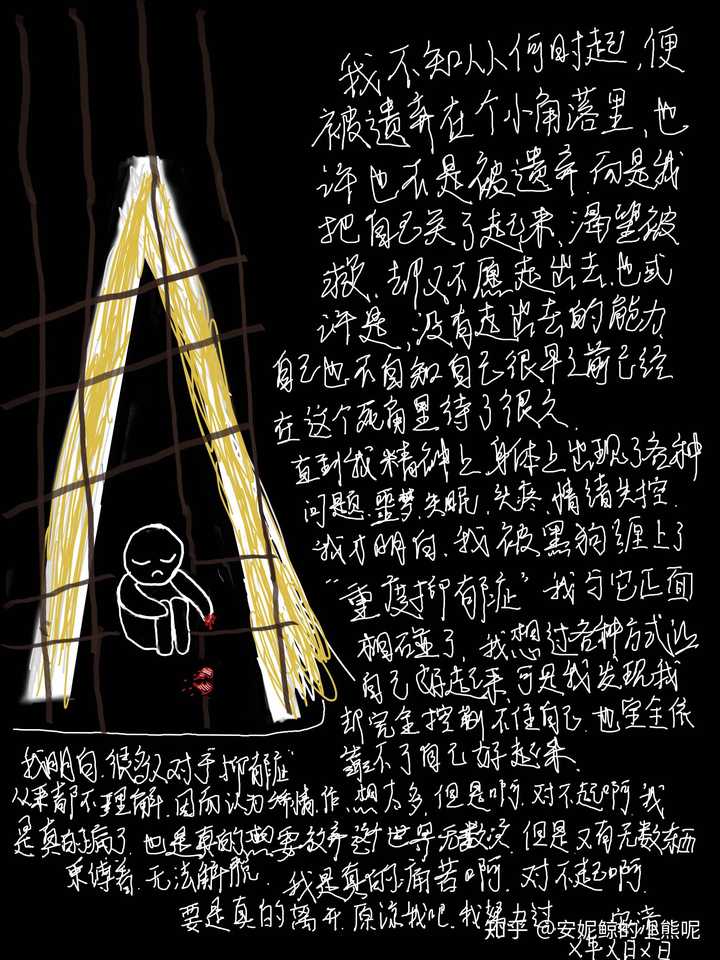 我不知从何时起，便
被遗弃在个小角落里，也
许也不是被遗弃，而是我
把自己关了起来，渴望被
救，却又不愿走出去，也或
许是，没有走出去的能力
自己也不自知自己很早之前已经
在这个死角里待了很久.
直到我精神上，身体上出现了各种
问题，噩梦，失眠，头疼，情绪失控.
我才明白，我被黑狗缠上了
“重度抑郁症”我与它正面
相碰了，我想过各种方式让
自己好起来，可是我发现我
却完全控制不住自己，也完全依
靠不了自己好起来.
我明白，很多人对于抑郁症
从来都不理解，因而认为矫情，作，想太多，但是啊，对不起啊，我
是真的病了，也是真的想要放弃这世界无数次，但是又有无数东西
束缚着，无法解脱. 我是真的痛苦啊，对不起啊.
要是真的离开，原谅我吧，我努力过
知乎 @安妮鲸的渣熊呢
X年X月X日